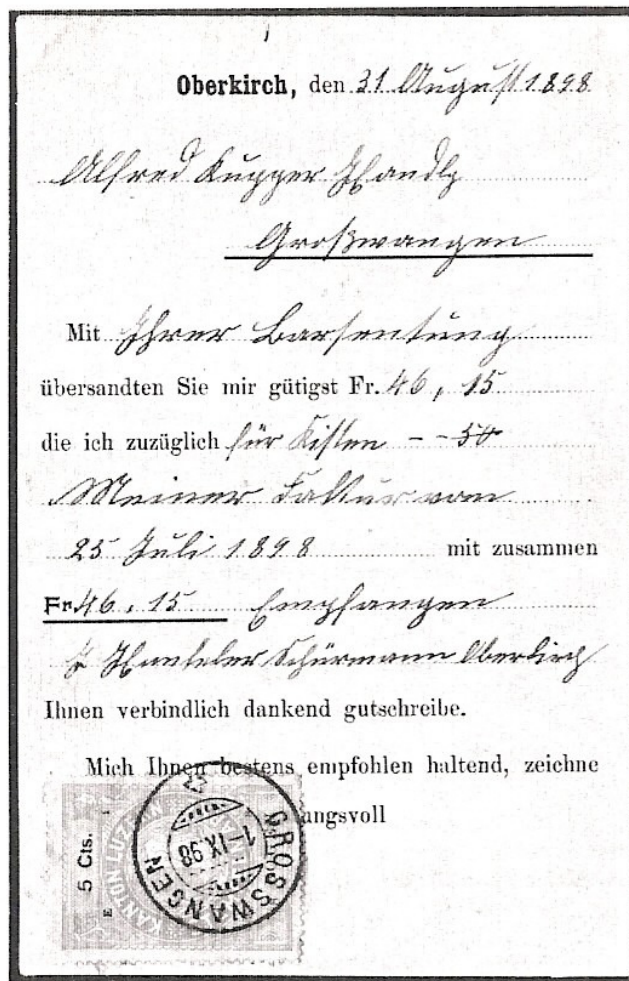 Oberkirch, den 31 August 1898
Alfred Kupper Handlg
Großwangen
Mit Ihrer Barsentung
übersandten Sie mir gütigst Fr. 46, 15
die ich zuzüglich für Kisten - - 50
Meiner Faktur vom
25 Juli 1898 mit zusammen
Fr. 46, 15 Empfangen
Schürmann Oberkirch
Ihnen verbindlich dankend gutschreibe.
Mich Ihnen bestens empfohlen haltend, zeichne
ungsvoll
5 Cts.
E
KANTON LUZERN
GROSSWANGEN
1-IX.98